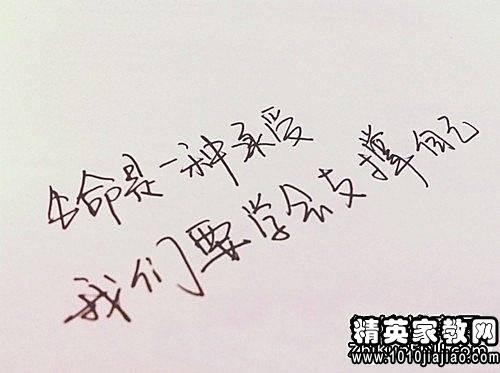 生命是一种承受
我们要学会支撑自己
精英家教网
www.1010jiajiao.com